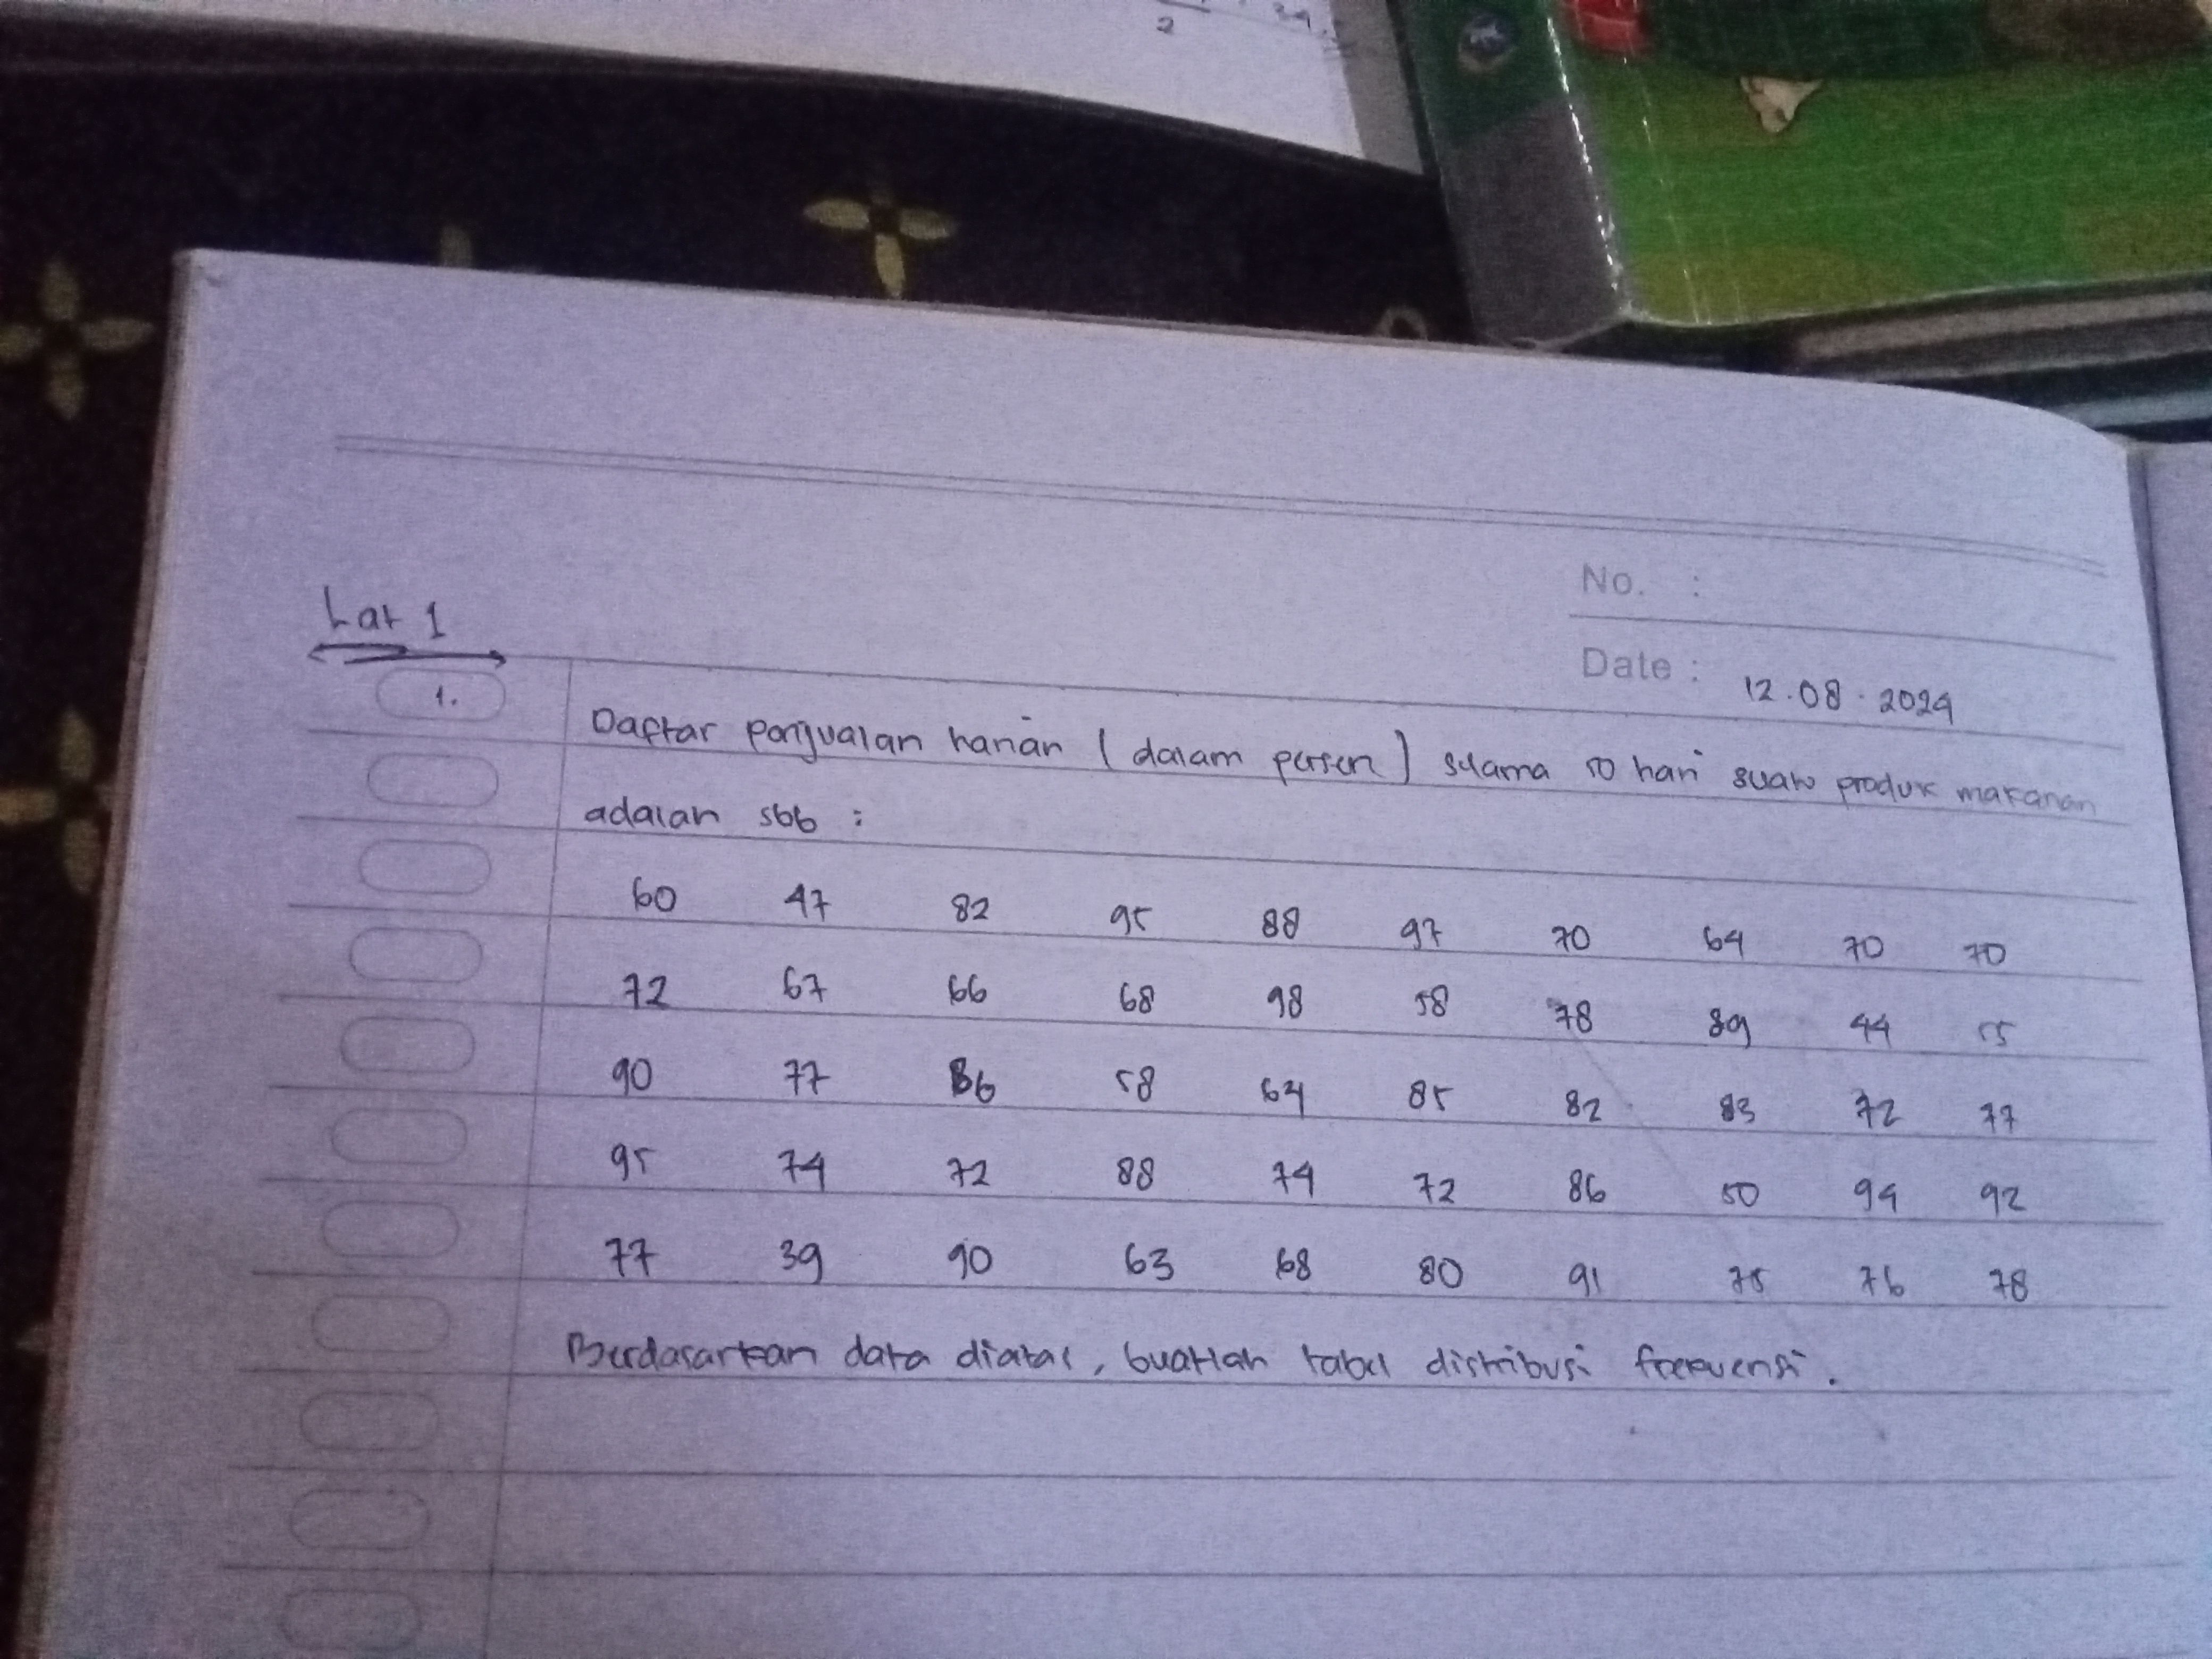 2
Lat 1
No. :
Date : 12.08.2024
1.
Daftar penjualan harian (dalam persen) selama 50 hari suatu produk makanan
adalah sbb :
60 47 82 95 88 97 70 64 70 70
72 67 66 68 98 58 78 89 44 55
90 77 86 58 64 85 82 83 72 77
95 74 72 88 74 72 86 50 94 92
77 39 90 63 68 80 91 75 76 78
Berdasarkan data diatas, buatlah tabel distribusi frekuensi.